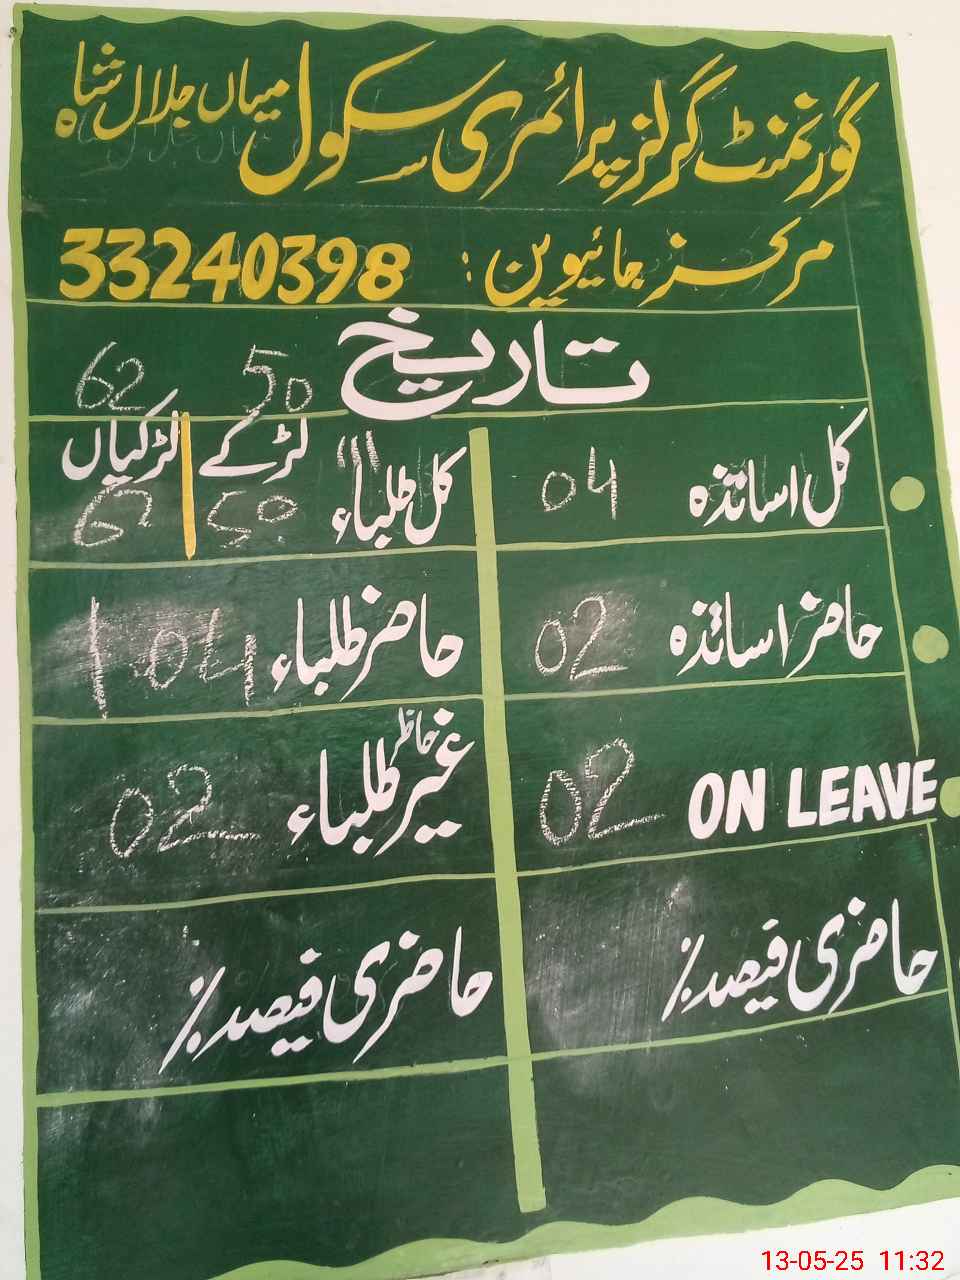 گورنمنٹ گرلز پرائمری سکول میاں جلال شاہ
مرکز جائیوین : 33240398
تاریخ
50 62
کل اساتذہ 04
کل طلباء لڑکے 50 لڑکیاں 62
حاضر اساتذہ 02
حاضر طلباء 104
ON LEAVE 02
غیر حاظر طلباء 02
حاضری فیصد %
حاضری فیصد %
13-05-25 11:32